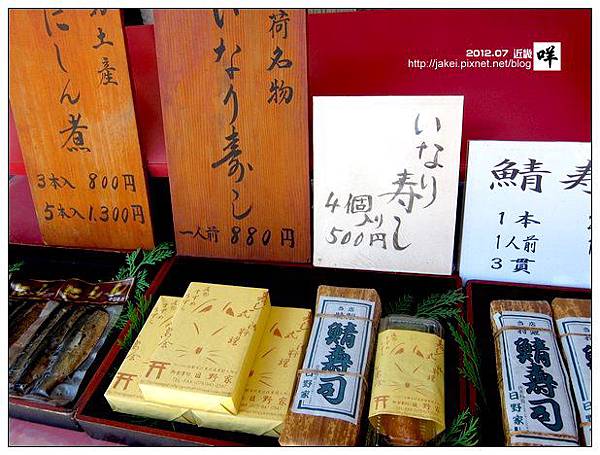 お土産
にしん煮
3本入 800円
5本入 1.300円
荷名物
いなり寿し
一人前 880円
いなり寿し
4個入り
500円
鯖寿
1本
1人前
3貫
2012.07 近畿
咩
http://jakei.pixnet.net/blog
式料理
日野家
当店特撰
鯖寿司
日野家
当店特撰
鯖寿司
日野家
鯖寿司